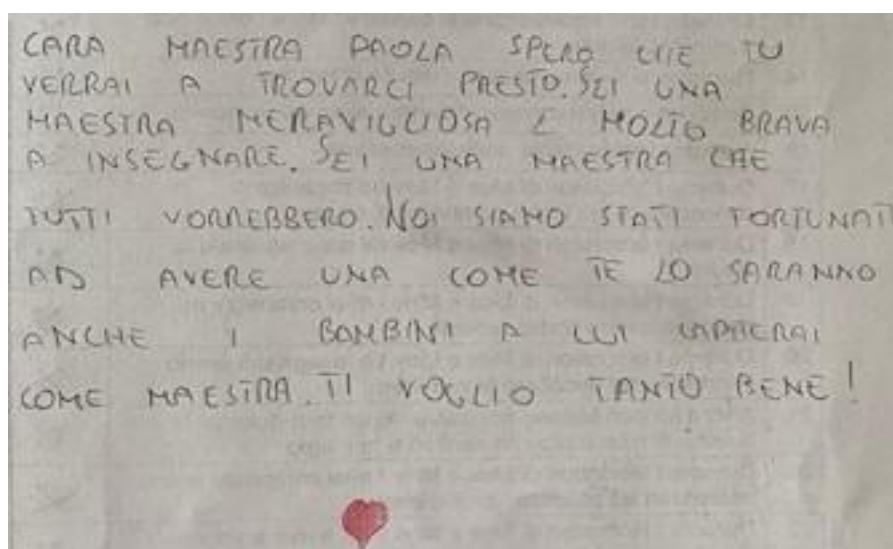 CARA MAESTRA PAOLA SPERO CHE TU
VERRAI A TROVARCI PRESTO. SEI UNA
MAESTRA MERAVIGLIOSA E MOLTO BRAVA
A INSEGNARE. SEI UNA MAESTRA CHE
TUTTI VORREBBERO. NOI SIAMO STATI FORTUNATI
AD AVERE UNA COME TE LO SARANNO
ANCHE I BAMBINI A CUI CAPITERAI
COME MAESTRA. TI VOGLIO TANTO BENE!